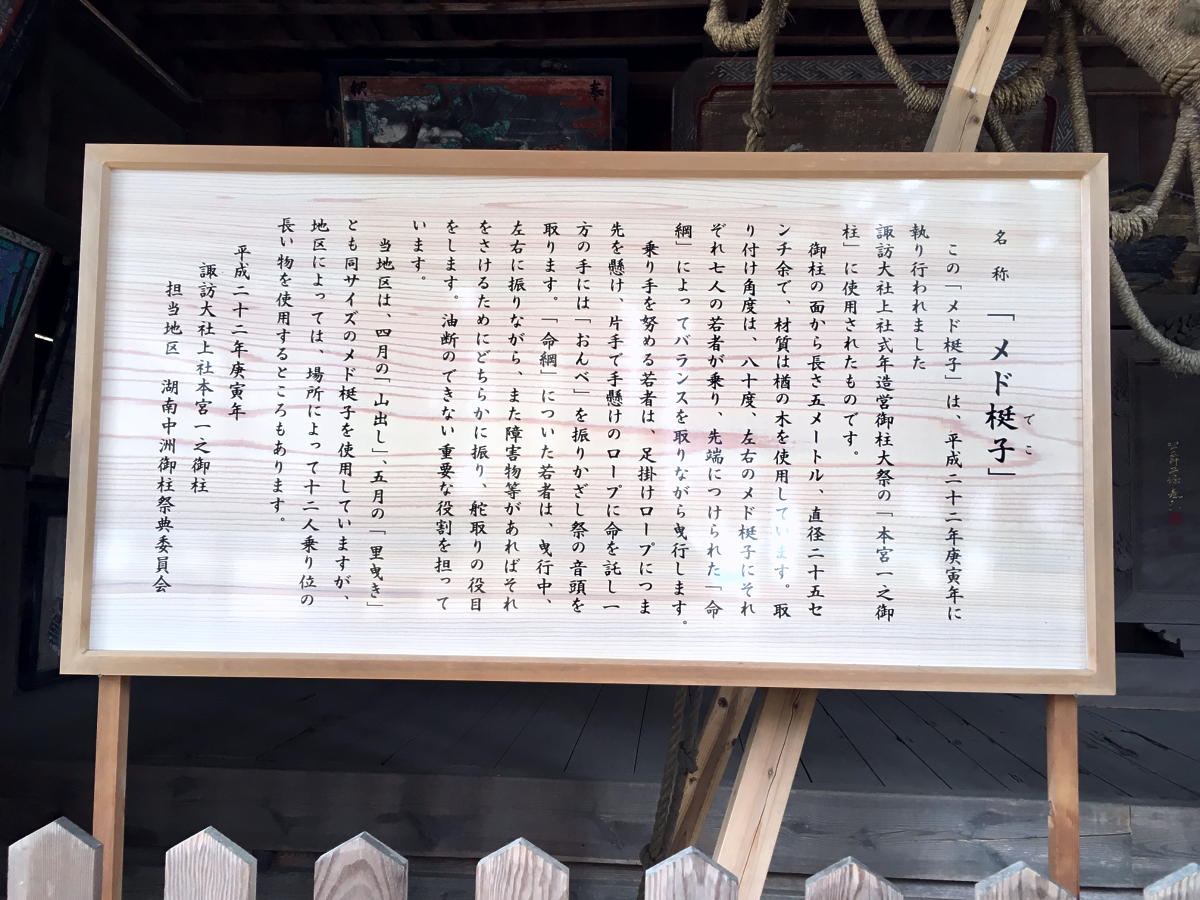 名称　「メド梃子」
でこ
この「メド梃子」は、平成二十二年庚寅年に
執り行われました
諏訪大社上社式年造営御柱大祭の「本宮一之御
柱」に使用されたものです。
御柱の面から長さ五メートル、直径二十五セ
ンチ余で、材質は楢の木を使用しています。取
り付け角度は、八十度、左右のメド梃子にそれ
ぞれ七人の若者が乗り、先端につけられた「命
綱」によってバランスを取りながら曳行します。
乗り手を努める若者は、足掛けロープにつま
先を懸け、片手で手懸けのロープに命を託し一
方の手には「おんべ」を振りかざし祭の音頭を
取ります。「命綱」についた若者は、曳行中、
左右に振りながら、また障害物等があればそれ
をさけるためにどちらかに振り、舵取りの役目
をします。油断のできない重要な役割を担って
います。
当地区は、四月の「山出し」、五月の「里曳き」
とも同サイズのメド梃子を使用していますが、
地区によっては、場所によって十二人乗り位の
長い物を使用するところもあります。
平成二十二年庚寅年
諏訪大社上社本宮一之御柱
担当地区　湖南中洲御柱祭典委員会
奉